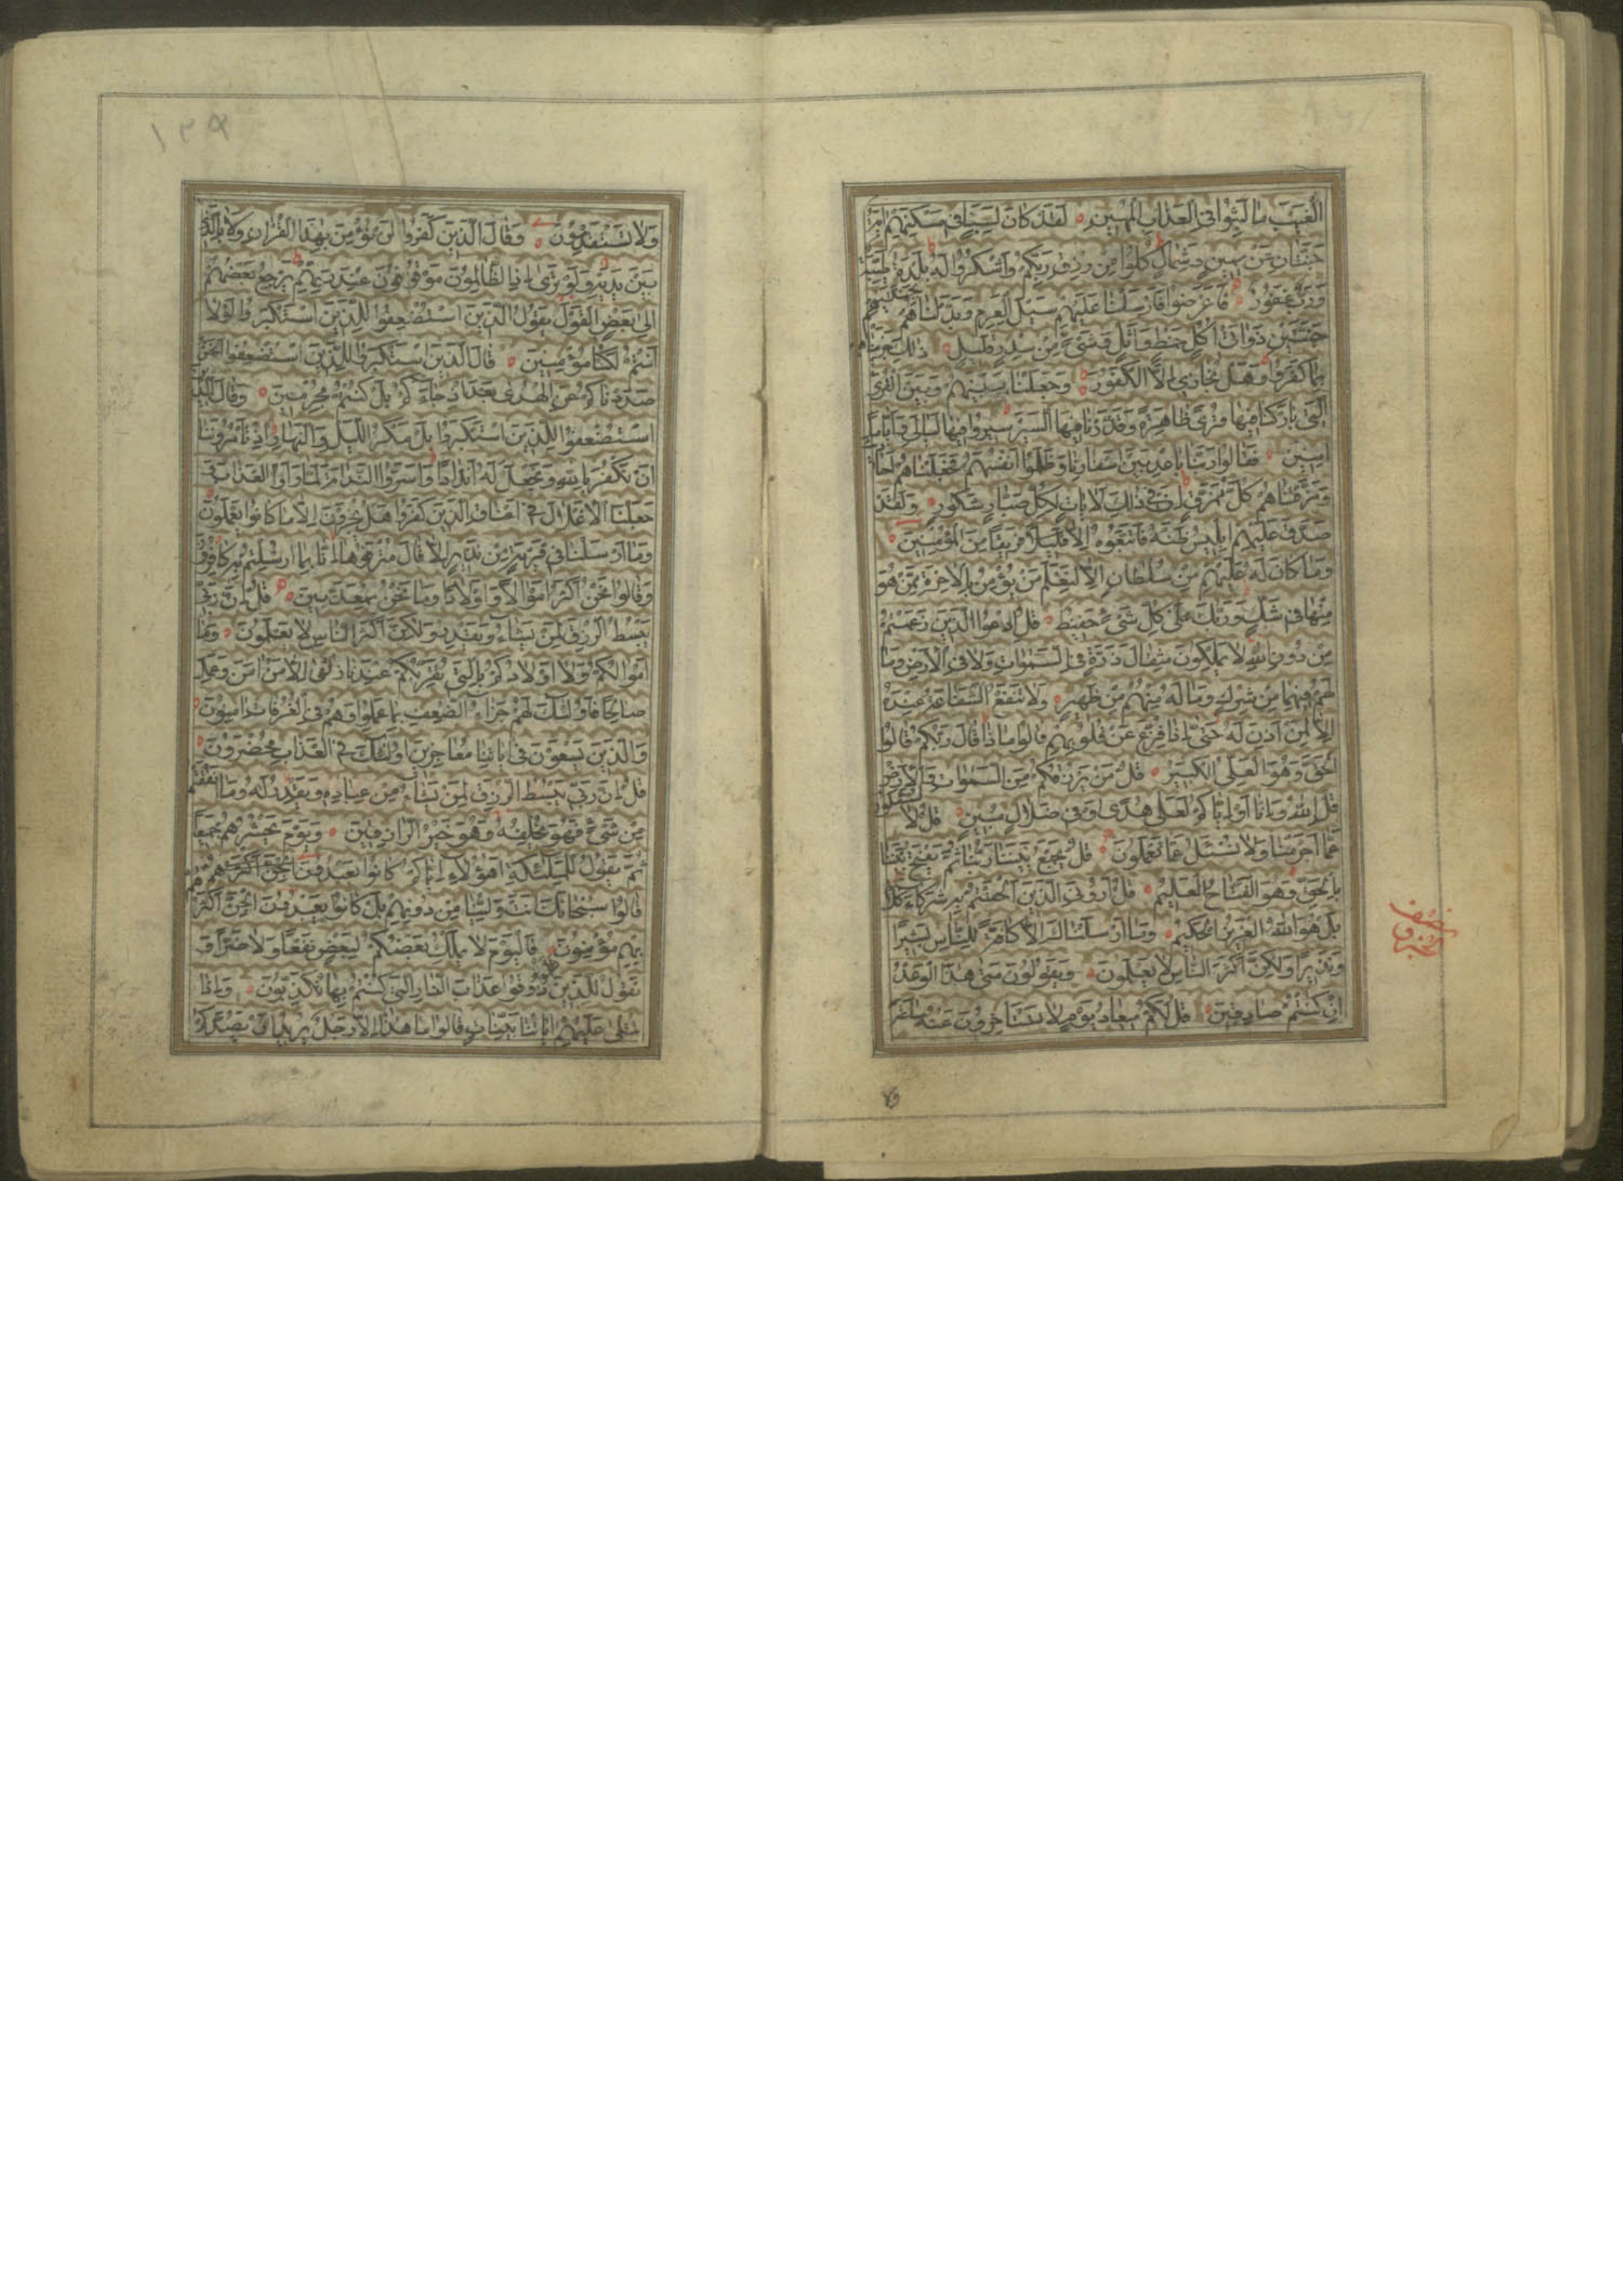 الْغَيْبَ مَا لَبِثُوا فِي الْعَذَابِ الْمُهِينِ لَقَدْ كَانَ لِسَبَإٍ فِي مَسْكَنِهِمْ اٰيَةٌ
جَنَّتَانِ عَنْ يَمِينٍ وَشِمَالٍ كُلُوا مِنْ رِزْقِ رَبِّكُمْ وَاشْكُرُوا لَهُ بَلْدَةٌ طَيِّبَةٌ
وَرَبٌّ غَفُورٌ فَاَعْرَضُوا فَاَرْسَلْنَا عَلَيْهِمْ سَيْلَ الْعَرِمِ وَبَدَّلْنَاهُمْ بِجَنَّتَيْهِمْ
جَنَّتَيْنِ ذَوَاتَيْ اُكُلٍ خَمْطٍ وَاَثْلٍ وَشَيْءٍ مِنْ سِدْرٍ قَلِيلٍ ذٰلِكَ جَزَيْنَاهُمْ
بِمَا كَفَرُوا وَهَلْ نُجَازِي اِلَّا الْكَفُورَ وَجَعَلْنَا بَيْنَهُمْ وَبَيْنَ الْقُرَى
الَّتِي بَارَكْنَا فِيهَا قُرًى ظَاهِرَةً وَقَدَّرْنَا فِيهَا السَّيْرَ سِيرُوا فِيهَا لَيَالِيَ وَاَيَّامًا
اٰمِنِينَ فَقَالُوا رَبَّنَا بَاعِدْ بَيْنَ اَسْفَارِنَا وَظَلَمُوا اَنْفُسَهُمْ فَجَعَلْنَاهُمْ اَحَادِيثَ
وَمَزَّقْنَاهُمْ كُلَّ مُمَزَّقٍ اِنَّ فِي ذٰلِكَ لَاٰيَاتٍ لِكُلِّ صَبَّارٍ شَكُورٍ وَلَقَدْ
صَدَّقَ عَلَيْهِمْ اِبْلِيسُ ظَنَّهُ فَاتَّبَعُوهُ اِلَّا فَرِيقًا مِنَ الْمُؤْمِنِينَ
وَمَا كَانَ لَهُ عَلَيْهِمْ مِنْ سُلْطَانٍ اِلَّا لِنَعْلَمَ مَنْ يُؤْمِنُ بِالْاٰخِرَةِ مِمَّنْ هُوَ
مِنْهَا فِي شَكٍّ وَرَبُّكَ عَلٰى كُلِّ شَيْءٍ حَفِيظٌ قُلِ ادْعُوا الَّذِينَ زَعَمْتُمْ
مِنْ دُونِ اللّٰهِ لَا يَمْلِكُونَ مِثْقَالَ ذَرَّةٍ فِي السَّمٰوَاتِ وَلَا فِي الْاَرْضِ وَمَا
لَهُمْ فِيهِمَا مِنْ شِرْكٍ وَمَا لَهُ مِنْهُمْ مِنْ ظَهِيرٍ وَلَا تَنْفَعُ الشَّفَاعَةُ عِنْدَهُ
اِلَّا لِمَنْ اَذِنَ لَهُ حَتّٰى اِذَا فُزِّعَ عَنْ قُلُوبِهِمْ قَالُوا مَاذَا قَالَ رَبُّكُمْ قَالُوا
الْحَقَّ وَهُوَ الْعَلِيُّ الْكَبِيرُ قُلْ مَنْ يَرْزُقُكُمْ مِنَ السَّمٰوَاتِ وَالْاَرْضِ
قُلِ اللّٰهُ وَاِنَّا اَوْ اِيَّاكُمْ لَعَلٰى هُدًى اَوْ فِي ضَلَالٍ مُبِينٍ قُلْ لَا تُسْئَلُونَ
عَمَّا اَجْرَمْنَا وَلَا نُسْئَلُ عَمَّا تَعْمَلُونَ قُلْ يَجْمَعُ بَيْنَنَا رَبُّنَا ثُمَّ يَفْتَحُ بَيْنَنَا
بِالْحَقِّ وَهُوَ الْفَتَّاحُ الْعَلِيمُ قُلْ اَرُونِيَ الَّذِينَ اَلْحَقْتُمْ بِهِ شُرَكَاءَ كَلَّا
بَلْ هُوَ اللّٰهُ الْعَزِيزُ الْحَكِيمُ وَمَا اَرْسَلْنَاكَ اِلَّا كَافَّةً لِلنَّاسِ بَشِيرًا
وَنَذِيرًا وَلٰكِنَّ اَكْثَرَ النَّاسِ لَا يَعْلَمُونَ وَيَقُولُونَ مَتٰى هٰذَا الْوَعْدُ
اِنْ كُنْتُمْ صَادِقِينَ قُلْ لَكُمْ مِيعَادُ يَوْمٍ لَا تَسْتَأْخِرُونَ عَنْهُ سَاعَةً
نصف
الجزؤ
ولا
١٣٩
وَلَا تَسْتَقْدِمُونَ وَقَالَ الَّذِينَ كَفَرُوا لَنْ نُؤْمِنَ بِهٰذَا الْقُرْاٰنِ وَلَا بِالَّذِي
بَيْنَ يَدَيْهِ وَلَوْ تَرٰى اِذِ الظَّالِمُونَ مَوْقُوفُونَ عِنْدَ رَبِّهِمْ يَرْجِعُ بَعْضُهُمْ
اِلٰى بَعْضٍ الْقَوْلَ يَقُولُ الَّذِينَ اسْتُضْعِفُوا لِلَّذِينَ اسْتَكْبَرُوا لَوْلَا
اَنْتُمْ لَكُنَّا مُؤْمِنِينَ قَالَ الَّذِينَ اسْتَكْبَرُوا لِلَّذِينَ اسْتُضْعِفُوا اَنَحْنُ
صَدَدْنَاكُمْ عَنِ الْهُدٰى بَعْدَ اِذْ جَاءَكُمْ بَلْ كُنْتُمْ مُجْرِمِينَ وَقَالَ الَّذِينَ
اسْتُضْعِفُوا لِلَّذِينَ اسْتَكْبَرُوا بَلْ مَكْرُ اللَّيْلِ وَالنَّهَارِ اِذْ تَأْمُرُونَنَا
اَنْ نَكْفُرَ بِاللّٰهِ وَنَجْعَلَ لَهُ اَنْدَادًا وَاَسَرُّوا النَّدَامَةَ لَمَّا رَاَوُا الْعَذَابَ وَ
جَعَلْنَا الْاَغْلَالَ فِي اَعْنَاقِ الَّذِينَ كَفَرُوا هَلْ يُجْزَوْنَ اِلَّا مَا كَانُوا يَعْمَلُونَ
وَمَا اَرْسَلْنَا فِي قَرْيَةٍ مِنْ نَذِيرٍ اِلَّا قَالَ مُتْرَفُوهَا اِنَّا بِمَا اُرْسِلْتُمْ بِهِ كَافِرُونَ
وَقَالُوا نَحْنُ اَكْثَرُ اَمْوَالًا وَاَوْلَادًا وَمَا نَحْنُ بِمُعَذَّبِينَ قُلْ اِنَّ رَبِّي
يَبْسُطُ الرِّزْقَ لِمَنْ يَشَاءُ وَيَقْدِرُ وَلٰكِنَّ اَكْثَرَ النَّاسِ لَا يَعْلَمُونَ وَمَا
اَمْوَالُكُمْ وَلَا اَوْلَادُكُمْ بِالَّتِي تُقَرِّبُكُمْ عِنْدَنَا زُلْفٰى اِلَّا مَنْ اٰمَنَ وَعَمِلَ
صَالِحًا فَاُولٰئِكَ لَهُمْ جَزَاءُ الضِّعْفِ بِمَا عَمِلُوا وَهُمْ فِي الْغُرُفَاتِ اٰمِنُونَ
وَالَّذِينَ يَسْعَوْنَ فِي اٰيَاتِنَا مُعَاجِزِينَ اُولٰئِكَ فِي الْعَذَابِ مُحْضَرُونَ
قُلْ اِنَّ رَبِّي يَبْسُطُ الرِّزْقَ لِمَنْ يَشَاءُ مِنْ عِبَادِهِ وَيَقْدِرُ لَهُ وَمَا اَنْفَقْتُمْ
مِنْ شَيْءٍ فَهُوَ يُخْلِفُهُ وَهُوَ خَيْرُ الرَّازِقِينَ وَيَوْمَ يَحْشُرُهُمْ جَمِيعًا
ثُمَّ يَقُولُ لِلْمَلٰئِكَةِ اَهٰؤُلَاءِ اِيَّاكُمْ كَانُوا يَعْبُدُونَ
قَالُوا سُبْحَانَكَ اَنْتَ وَلِيُّنَا مِنْ دُونِهِمْ بَلْ كَانُوا يَعْبُدُونَ الْجِنَّ اَكْثَرُهُمْ
بِهِمْ مُؤْمِنُونَ فَالْيَوْمَ لَا يَمْلِكُ بَعْضُكُمْ لِبَعْضٍ نَفْعًا وَلَا ضَرًّا وَ
نَقُولُ لِلَّذِينَ ظَلَمُوا ذُوقُوا عَذَابَ النَّارِ الَّتِي كُنْتُمْ بِهَا تُكَذِّبُونَ وَاِذَا
تُتْلٰى عَلَيْهِمْ اٰيَاتُنَا بَيِّنَاتٍ قَالُوا مَا هٰذَا اِلَّا رَجُلٌ يُرِيدُ اَنْ يَصُدَّكُمْ